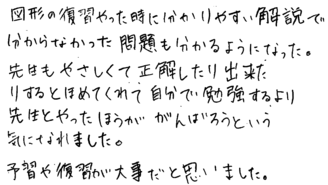 図形の復習やった時に分かりやすい解説で
分からなかった問題も分かるようになった。
先生もやさしくて正解したり出来た
りするとほめてくれて自分で勉強するより
先生とやったほうががんばろうという
気になれました。
予習や復習が大事だと思いました。